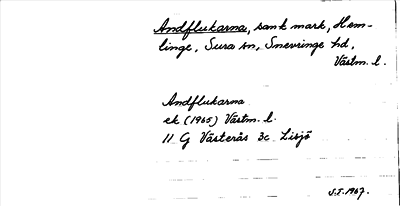 Andflukarna, sank mark, Hem-
linge, Sura sn, Snevringe hd,
Västm. l.
Andflukarna
ek (1965) Västm. l.
11 G Västerås 3c Lisjö
S.I. 1967.